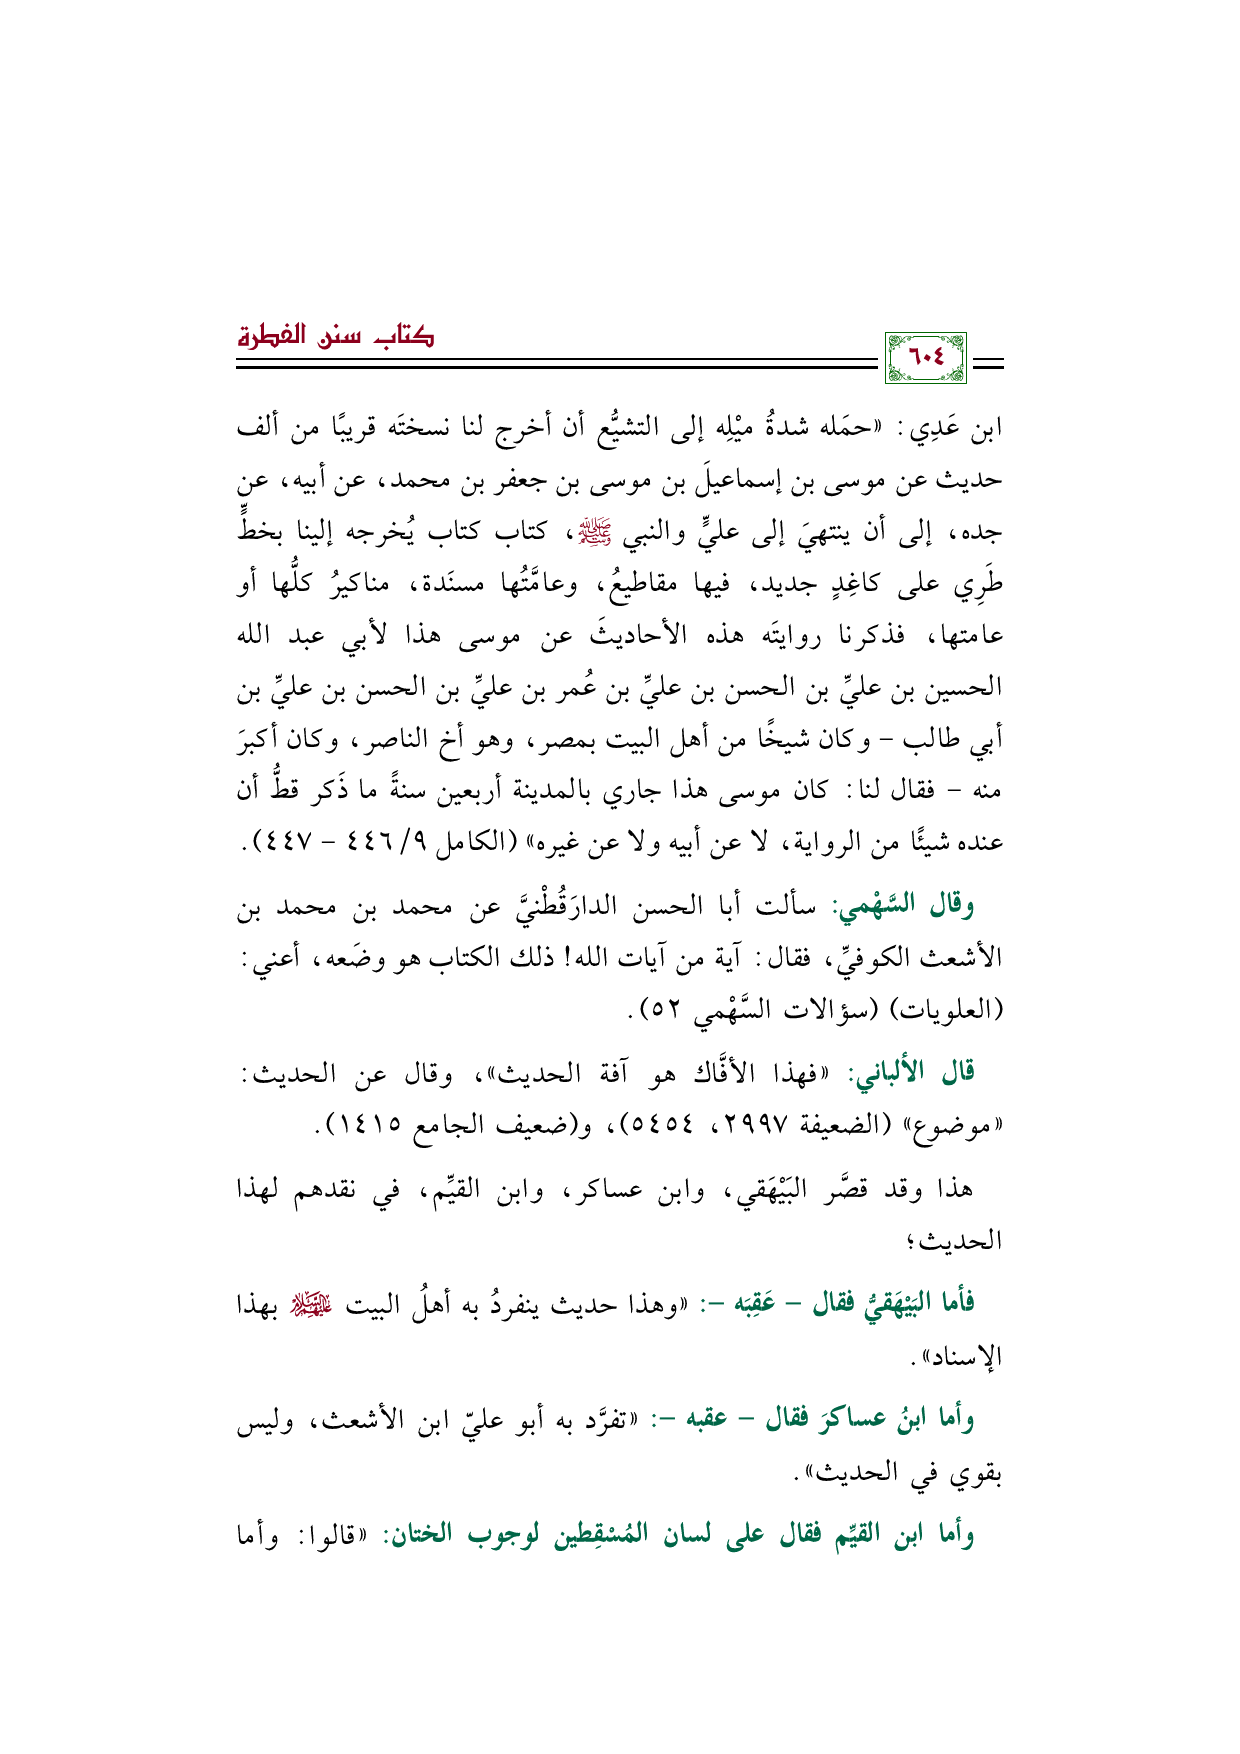 كتاب سنن الفطرة
٦٠٤
ابن عَدِي: «حمَله شدةُ ميْلِه إلى التشيُّع أن أخرج لنا نسختَه قريبًا من ألف
حديث عن موسى بن إسماعيلَ بن موسى بن جعفر بن محمد، عن أبيه، عن
جده، إلى أن ينتهيَ إلى عليٍّ والنبي ﷺ، كتاب كتاب يُخرجه إلينا بخطٍّ
طَرِي على كاغِدٍ جديد، فيها مقاطيعُ، وعامَّتُها مسنَدة، مناكيرُ كلُّها أو
عامتها، فذكرنا روايتَه هذه الأحاديثَ عن موسى هذا لأبي عبد الله
الحسين بن عليِّ بن الحسن بن عليِّ بن عُمر بن عليِّ بن الحسن بن عليِّ بن
أبي طالب – وكان شيخًا من أهل البيت بمصر، وهو أخ الناصر، وكان أكبرَ
منه – فقال لنا: كان موسى هذا جاري بالمدينة أربعين سنةً ما ذَكر قطُّ أن
عنده شيئًا من الرواية، لا عن أبيه ولا عن غيره» (الكامل ٩/ ٤٤٦ – ٤٤٧).
وقال السَّهْمي: سألت أبا الحسن الدارَقُطْنيَّ عن محمد بن محمد بن
الأشعث الكوفيِّ، فقال: آية من آيات الله! ذلك الكتاب هو وضَعه، أعني:
(العلويات) (سؤالات السَّهْمي ٥٢).
قال الألباني: «فهذا الأفَّاك هو آفة الحديث»، وقال عن الحديث:
«موضوع» (الضعيفة ٢٩٩٧، ٥٤٥٤)، و(ضعيف الجامع ١٤١٥).
هذا وقد قصَّر البَيْهَقي، وابن عساكر، وابن القيِّم، في نقدهم لهذا
الحديث؛
فأما البَيْهَقيُّ فقال – عَقِبَه –: «وهذا حديث ينفردُ به أهلُ البيت عليهم السلام بهذا
الإسناد».
وأما ابنُ عساكرَ فقال – عقبه –: «تفرَّد به أبو عليّ ابن الأشعث، وليس
بقوي في الحديث».
وأما ابن القيِّم فقال على لسان المُسْقِطين لوجوب الختان: «قالوا: وأما